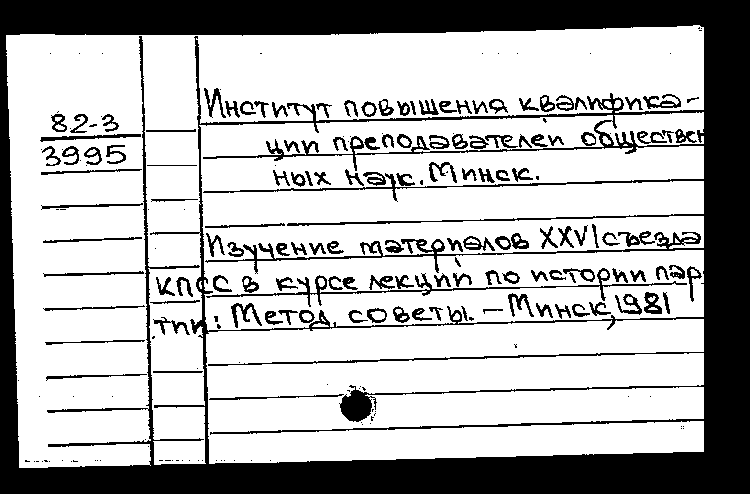 82-3
3995
Институт повышения квалифика-
ции преподавателей обществен
ных наук. Минск.
Изучение материалов XXVI съезда
КПСС в курсе лекций по истории пар
тии: Метод. советы. – Минск, 1981